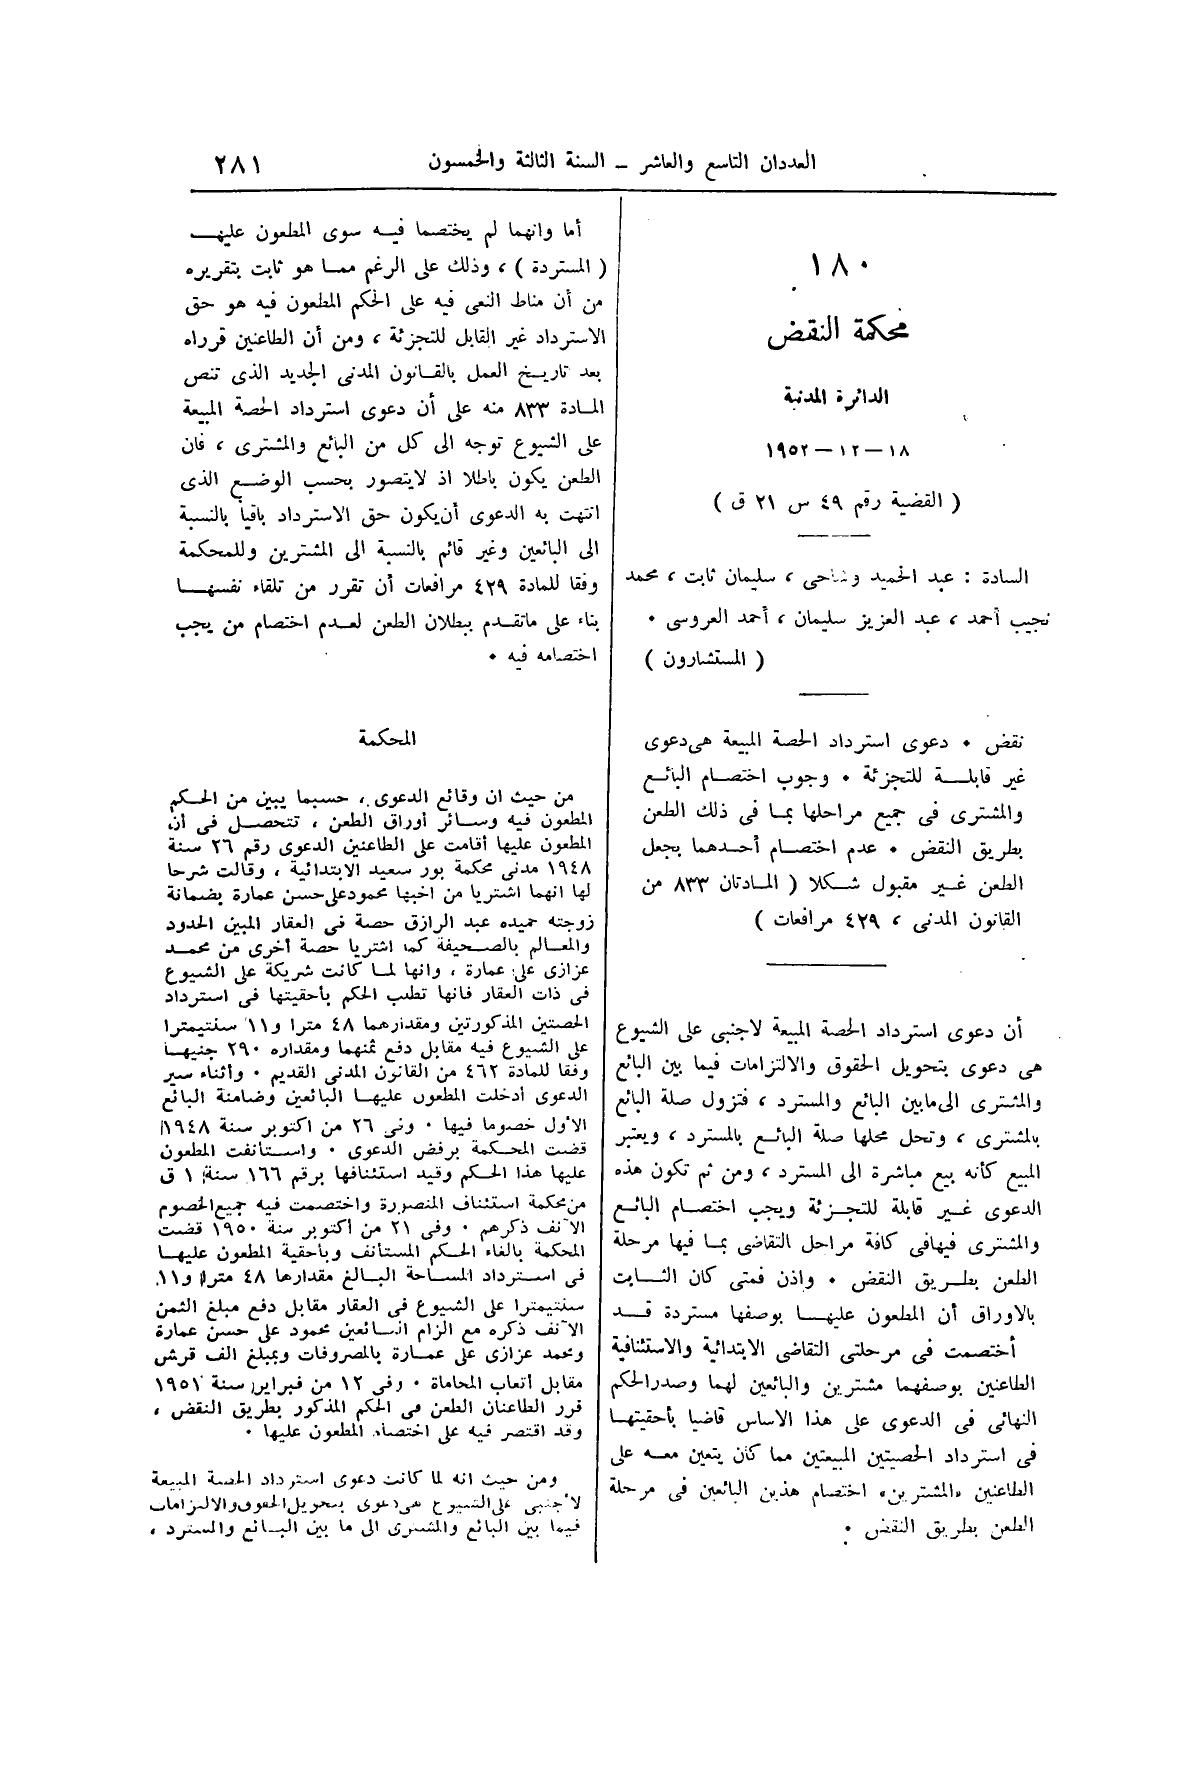 العددان التاسع والعاشر — السنة الثالثة والخمسون
٢٨١
١٨٠
محكمة النقض
الدائرة المدنية
١٨ — ١٢ — ١٩٥٢
( القضية رقم ٤٩ س ٢١ ق )
السادة : عبد الحميد وشاحى ، سليمان ثابت ، محمد
نجيب أحمد ، عبد العزيز سليمان ، أحمد العروسى ٠
( المستشارون )
نقض ٠ دعوى استرداد الحصة المبيعة هى دعوى
غير قابلة للتجزئة ٠ وجوب اختصام البائع
والمشترى فى جميع مراحلها بما فى ذلك الطعن
بطريق النقض ٠ عدم اختصام أحدهما يجعل
الطعن غير مقبول شكلا ( المادتان ٨٣٣ من
القانون المدنى ، ٤٢٩ مرافعات )
أن دعوى استرداد الحصة المبيعة لاجنبى على الشيوع
هى دعوى بتحويل الحقوق والالتزامات فيما بين البائع
والمشترى الى مابين البائع والمسترد ، فتزول صلة البائع
بالمشترى ، وتحل محلها صلة البائع بالمسترد ، ويعتبر
المبيع كأنه بيع مباشرة الى المسترد ، ومن ثم تكون هذه
الدعوى غير قابلة للتجزئة ويجب اختصام البائع
والمشترى فيها فى كافة مراحل التقاضى بما فيها مرحلة
الطعن بطريق النقض ٠ واذن فمتى كان الثابت
بالاوراق أن المطعون عليها بوصفها مستردة قد
أختصمت فى مرحلتى التقاضى الابتدائية والاستئنافية
الطاعنين بوصفهما مشترين والبائعين لهما وصدر الحكم
النهائى فى الدعوى على هذا الاساس قاضيا بأحقيتها
فى استرداد الحصيتين المبيعتين مما كان يتعين معه على
الطاعنين «المشترين» اختصام هذين البائعين فى مرحلة
الطعن بطريق النقض ٠
أما وانهما لم يختصما فيه سوى المطعون عليها
( المستردة ) ، وذلك على الرغم مما هو ثابت بتقريره
من أن مناط النعى فيه على الحكم المطعون فيه هو حق
الاسترداد غير القابل للتجزئة ، ومن أن الطاعنين قرراه
بعد تاريخ العمل بالقانون المدنى الجديد الذى تنص
المادة ٨٣٣ منه على أن دعوى استرداد الحصة المبيعة
على الشيوع توجه الى كل من البائع والمشترى ، فان
الطعن يكون باطلا اذ لايتصور بحسب الوضع الذى
انتهت به الدعوى أن يكون حق الاسترداد باقيا بالنسبة
الى البائعين وغير قائم بالنسبة الى المشترين وللمحكمة
وفقا للمادة ٤٢٩ مرافعات أن تقرر من تلقاء نفسها
بناء على ماتقدم ببطلان الطعن لعدم اختصام من يجب
اختصامه فيه ٠
المحكمة
من حيث ان وقائع الدعوى ، حسبما يبين من الحكم
المطعون فيه وسائر أوراق الطعن ، تتحصل فى أن
المطعون عليها أقامت على الطاعنين الدعوى رقم ٢٦ سنة
١٩٤٨ مدنى محكمة بور سعيد الابتدائية ، وقالت شرحا
لها انهما اشتريا من اخيها محمود على حسن عمارة بضمانة
زوجته حميده عبد الرازق حصة فى العقار المبين الحدود
والمعالم بالصحيفة كما اشتريا حصة أخرى من محمد
عزازى على عمارة ، وانها لما كانت شريكة على الشيوع
فى ذات العقار فانها تطلب الحكم بأحقيتها فى استرداد
الحصتين المذكورتين ومقدارهما ٤٨ مترا و١١ سنتيمترا
على الشيوع فيه مقابل دفع ثمنهما ومقداره ٢٩٠ جنيها
وفقا للمادة ٤٦٢ من القانون المدنى القديم ٠ وأثناء سير
الدعوى أدخلت المطعون عليها البائعين وضامنة البائع
الأول خصوما فيها ٠ وفى ٢٦ من اكتوبر سنة ١٩٤٨
قضت المحكمة برفض الدعوى ٠ واستأنفت المطعون
عليها هذا الحكم وقيد استئنافها برقم ١٦٦ سنة ١ ق
من محكمة استئناف المنصورة واختصمت فيه جميع الخصوم
الآنف ذكرهم ٠ وفى ٢١ من أكتوبر سنة ١٩٥٠ قضت
المحكمة بالغاء الحكم المستأنف وبأحقية المطعون عليها
فى استرداد المساحة البالغ مقدارها ٤٨ مترا و١١
سنتيمترا على الشيوع فى العقار مقابل دفع مبلغ الثمن
الآنف ذكره مع الزام البائعين محمود على حسن عمارة
ومحمد عزازى على عمارة بالمصروفات وبمبلغ الف قرش
مقابل أتعاب المحاماة ٠ وفى ١٢ من فبراير سنة ١٩٥١
قرر الطاعنان الطعن فى الحكم المذكور بطريق النقض ،
وقد اقتصر فيه على اختصام المطعون عليها ٠
ومن حيث انه لما كانت دعوى استرداد الحصة المبيعة
لأجنبى على الشيوع هى دعوى بتحويل الحقوق والالتزامات
فيما بين البائع والمشترى الى ما بين البائع والمسترد ،